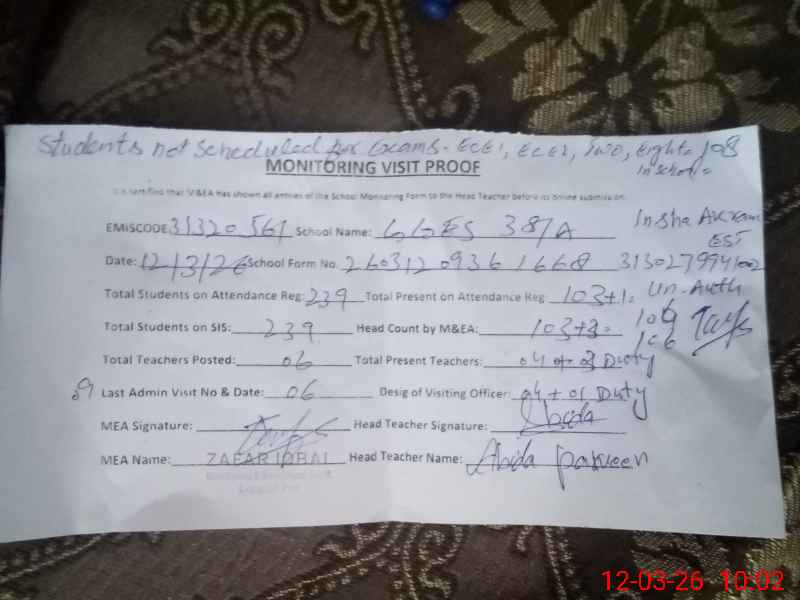 Students not Scheduled for Exams. ECE1, ECE2, Two, Eight = 108
MONITORING VISIT PROOF
In School =
It is certified that M&EA has shown all entries of the School Monitoring Form to the Head Teacher before its online submission.
EMISCODE 31320561 School Name: GGES 38/A
Insha Akram
EST
Date: 12/3/26 School Form No. 2603120936 1668 3130279941002
Total Students on Attendance Reg: 239 Total Present on Attendance Reg 103+1= Un-Auth
Total Students on SIS: 239 Head Count by M&EA: 103+3= 104
106
Total Teachers Posted: 06 Total Present Teachers: 04 Duty
Last Admin Visit No & Date: 06 Desig of Visiting Officer: 04 + 01 Duty
MEA Signature: Head Teacher Signature: Abida
MEA Name: ZAFAR IQBAL Head Teacher Name: Abida parveen
12-03-26 10:02